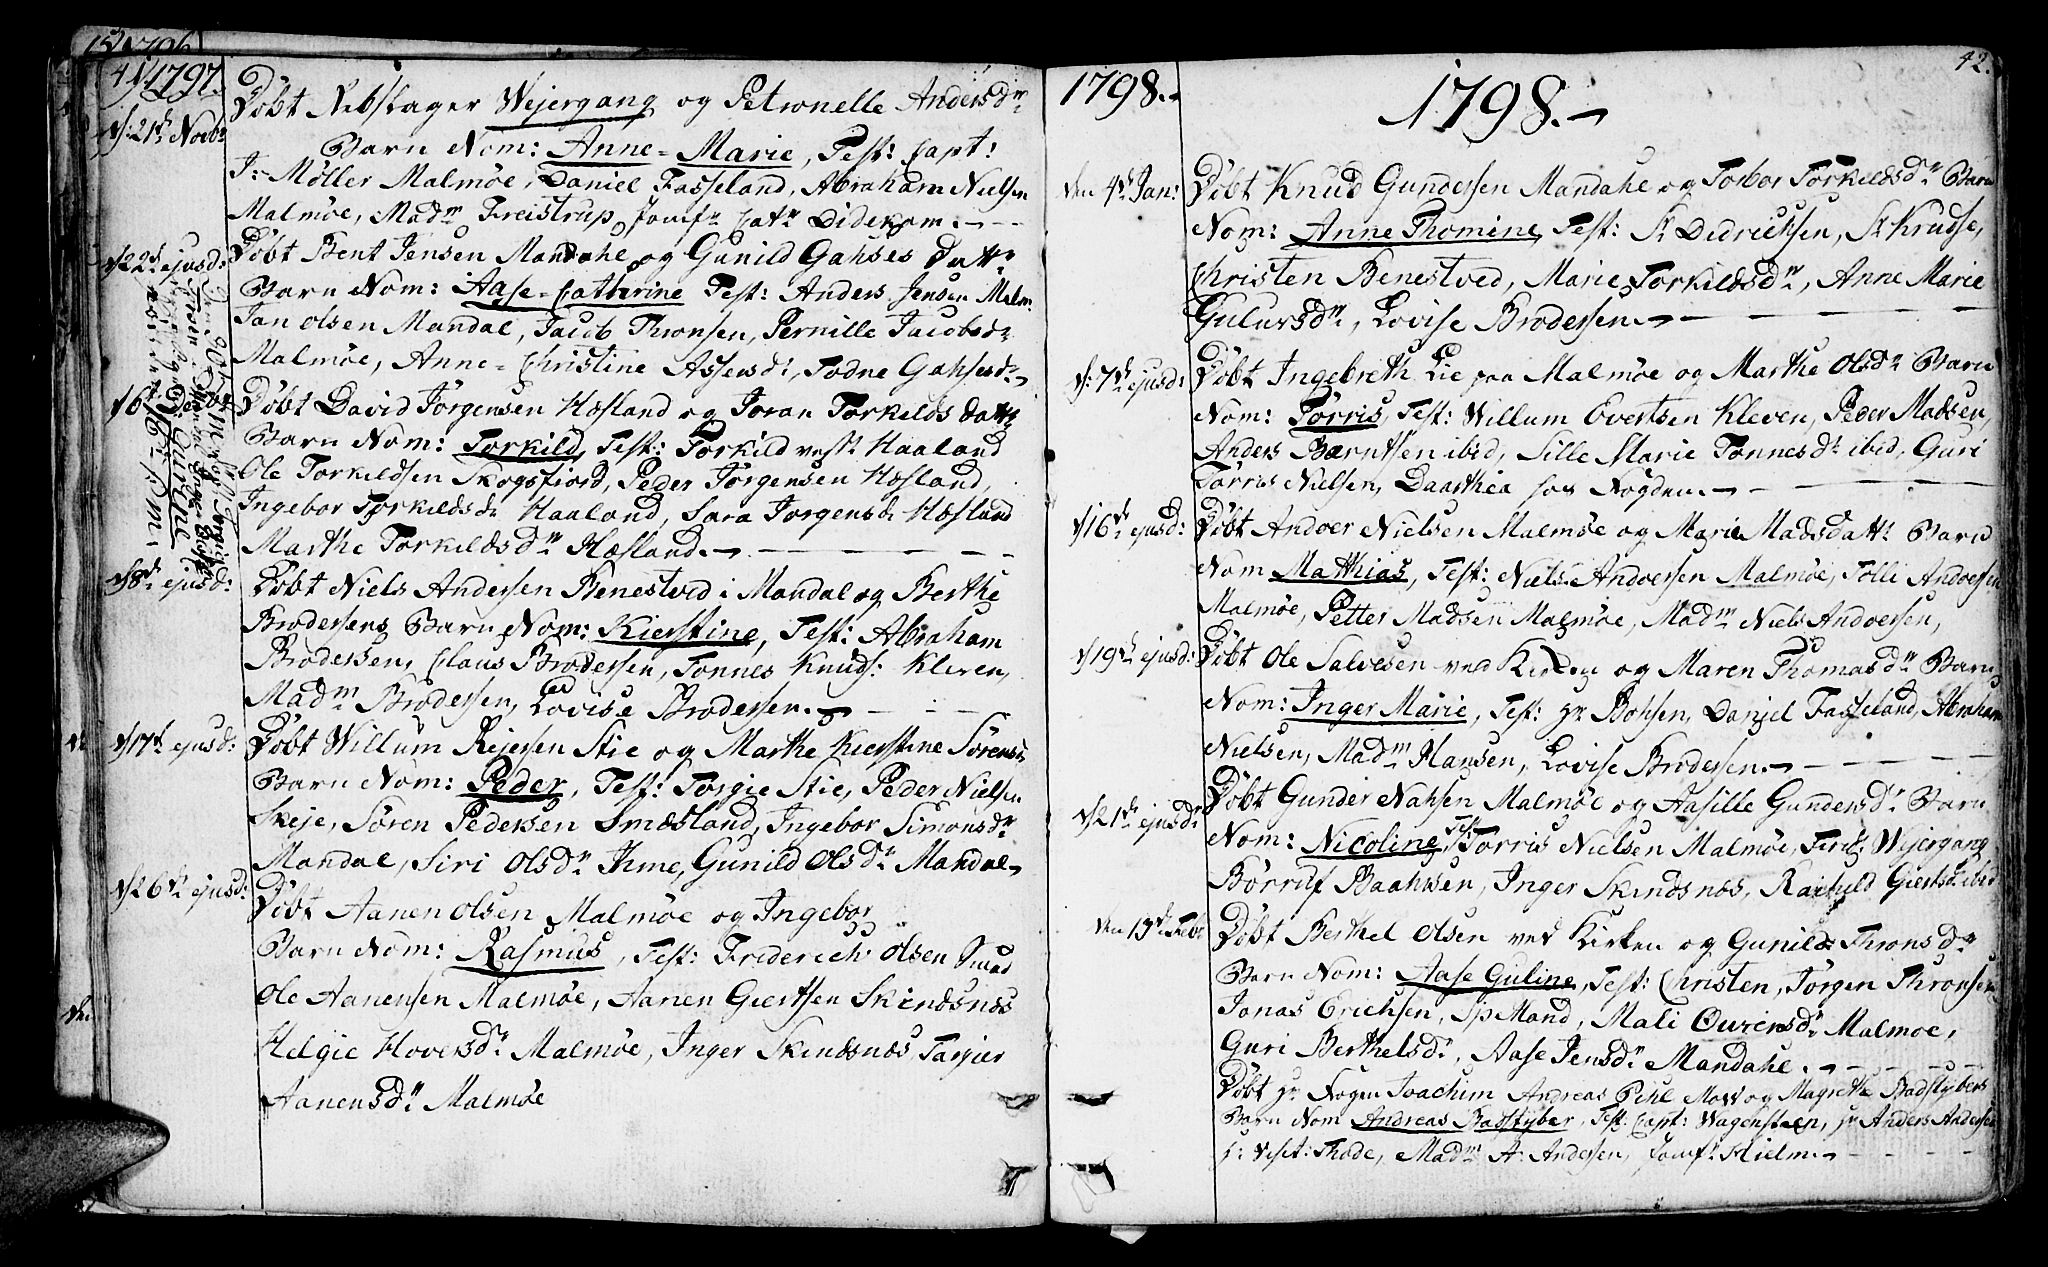 1797.
d: 21de Novbr
Døbt Nebslager Wejergang og Petronelle Andersdr
Barn Nom: Anne-Marie, Test: Capt:
J: Møller Malmøe, Daniel Fasseland, Abraham Nielsen
Malmøe, Madm Freistrup, Jomfr Catr Didekam.
d 22d ejusd:
Døbt Bent Jensen Mandahl og Gunild Gahses datt
Barn Nom: Aase-Catherine Test: Anders Jensen Malm:
Jan Olsen Mandal, Jacob Thronsen, Pernille Jacobsdr
Malmøe, Anne-Christine Assersdr, Todne Gahsesdr
Døbt David Jørgensen Høsland og Joran Torkilds datt
Barn Nom: Torkild, Test: Torkild Haaland
Ole Torkildsen Skogsfiord, Peder Jørgensen Høsland,
Ingebor Torkildsdr Haaland, Sara Jørgensdr Høsland
Marthe Torkildsdr Høsland.
d 8de ejusd:
Døbt Niels Andersen Benestved i Mandal og Berthe
Brodersens Barn Nom: Kierstine, Test: Abraham
Brodersen, Claus Brodersen, Tønnes Knuds: Kleven,
Madm Brodersen, Lovise Brodersen.
d 17de ejusd:
Døbt Willum Rejersen Stie og Marthe Kierstine Sørensdr
Barn Nom: Peder, Test: Torgie Stie, Peder Nielsen
Skeje, Søren Pedersen Smæsland, Ingebor Simonsdr
Mandal, Siri Olsdr Ihme, Gunild Olsdr Mandal
d 26de ejusd:
Døbt Aanen Olsen Malmøe og Ingebor
Barn Nom: Rasmus, Test: Friderich Olsen Smed
Ole Aanensen Malmøe, Aanen Giertsen Skindsnes
Helgie Hoversdr Malmøe, Inger Skindsnes, Tarjier
Aanensdr Malmøe
42.
1798.
1798.
den 4de Jan:
Døbt Knud Gundersen Mandahl og Torbor Torkildsdr Barn
Nom: Anne Thomine, Test: Sr Dedrichsen, Sr Kruse,
Christen Benestved, Marie Torkildsdr, Anne Marie
Gulovsdr, Lovise Brodersen.
d: 7de ejusd:
Døbt Ingebreth Lie paa Malmøe og Marthe Olsdr Barn
Nom: Tørris, Test: Willum Evertsen Kleven, Peder Madsen,
Anders Bærntsen ibid, Sille Marie Tønnesdr ibid, Guri
Tørris Nielsen, Daarthea hos Fogden.
d 16de ejusd:
Døbt Andoer Nielsen Malmøe og Marie Madsdatt: Barn
Nom Matthias, Test: Niels Andoersen Malmøe, Tolli Andoersen
Malmøe, Petter Madsen Malmøe, Madm Niels Andoersen,
d 19de ejusd:
Døbt Ole Salvesen ved Kirken og Maren Thomasdr Barn
Nom: Inger Marie, Test: Hr Bohsen, Daniel Fasseland, Abraham
Nielsen, Madm Hansen, Lovise Brodersen.
d 21de ejusd:
Døbt Gunder Nahsen Malmøe og Aasille Gundersdr Barn
Nom: Nicoline, Test: Tørris Nielsen Malmøe, Fred: Wejergang
Børruf Baahsen, Inger Skindsnes, Giertsdr ibid
den 13de Feb:
Døbt Berthel Olsen ved Kirken og Gunild Thronsdr
Barn Nom: Aase Guline, Test: Christen, Jørgen Thronsen
Jonas Erichsen, Mand, Mali Ourensdr Malmøe,
Guri Berthelsdr, Aase Jensdr Mandahl.
Døbt Hr Fogen Joachim Andreas Pihl Mow og Magrethe Badstybers
Barn Nom Andreas Badstyber, Test: Capt: Wagensteen, Hr Anders Andersen
Hr Visit: Thode, Madm A: Andersen, Jomfr Hielm.